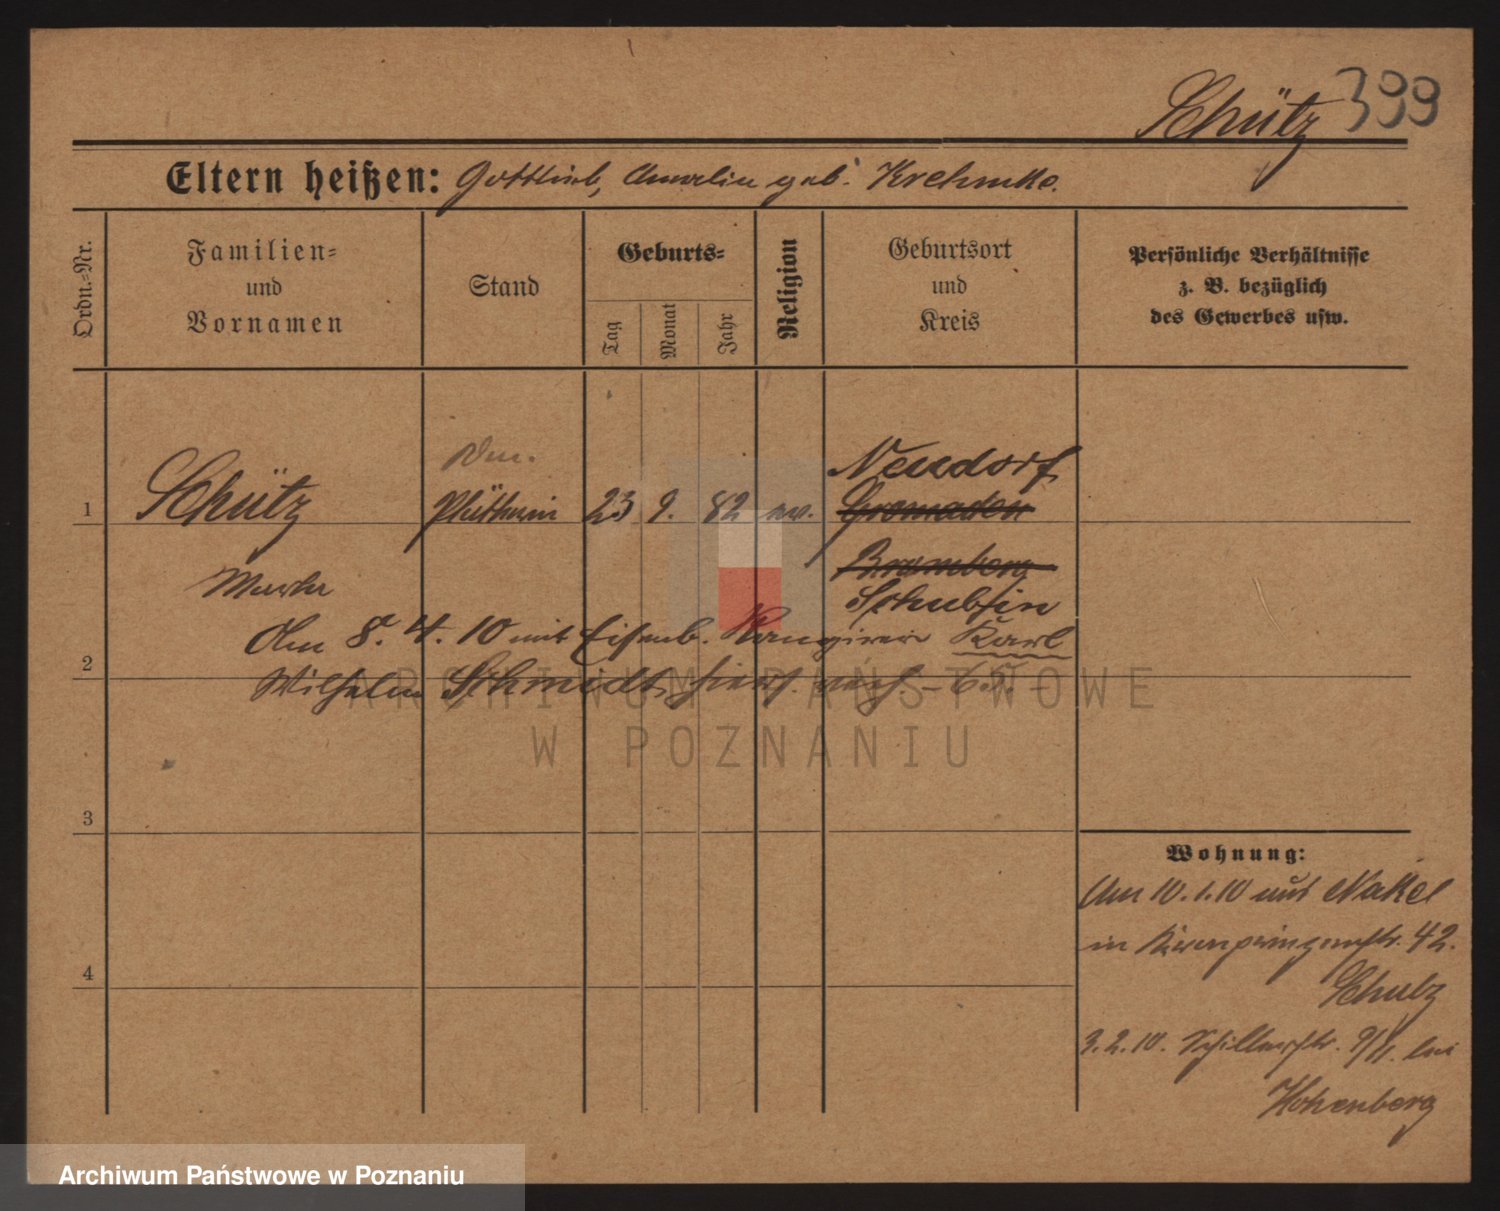 Schütz 399
Eltern heißen: Gottlieb, Amalie geb. Krehmke.
Ordn.-Nr.
Familien-
und
Vornamen
Stand
Geburts-
Tag
Monat
Jahr
Religion
Geburtsort
und
Kreis
Persönliche Verhältnisse
z. B. bezüglich
des Gewerbes usw.
1
Schütz
Plätterin
23 9. 82 ev.
Neudorf
Gromaden
Bromberg
Schubin
Martha
Am 8. 4. 10 mit Eisenb. Rangierer Karl
2
Wilhelm Schmidt hier verh.
ARCHIWUM PAŃSTWOWE
W POZNANIU
3
4
Wohnung:
Am 10.1.10 aus Nakel
in Kronprinzenstr. 42.
Schulz
3.2.10. Schillerstr. 9/II. bei
Hohenberg
Archiwum Państwowe w Poznaniu